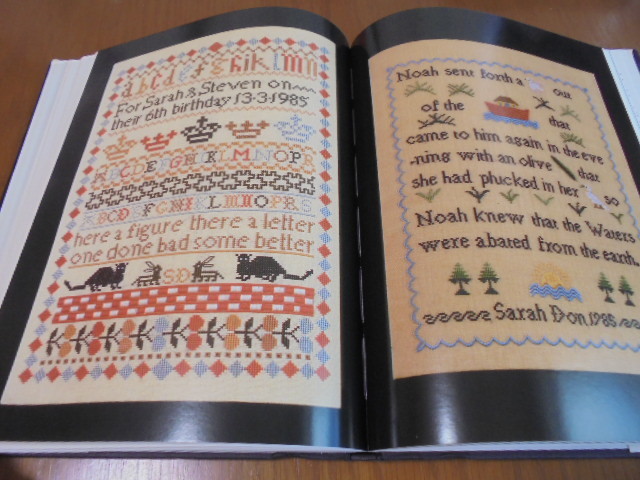 abcdefghiklmn
For Sarah & Steven on
their 6th birthday 13·3·1985
ABCDEFGHIKLMNOPR
ABCDEFGHIKLMNOPRS
here a figure there a letter
one done bad some better
SD
Noah sent forth a out
of the that
came to him again in the eve
-ning with an olive that
she had plucked in her so
Noah knew that the Waters
were abated from the earth.
Sarah Don 1985